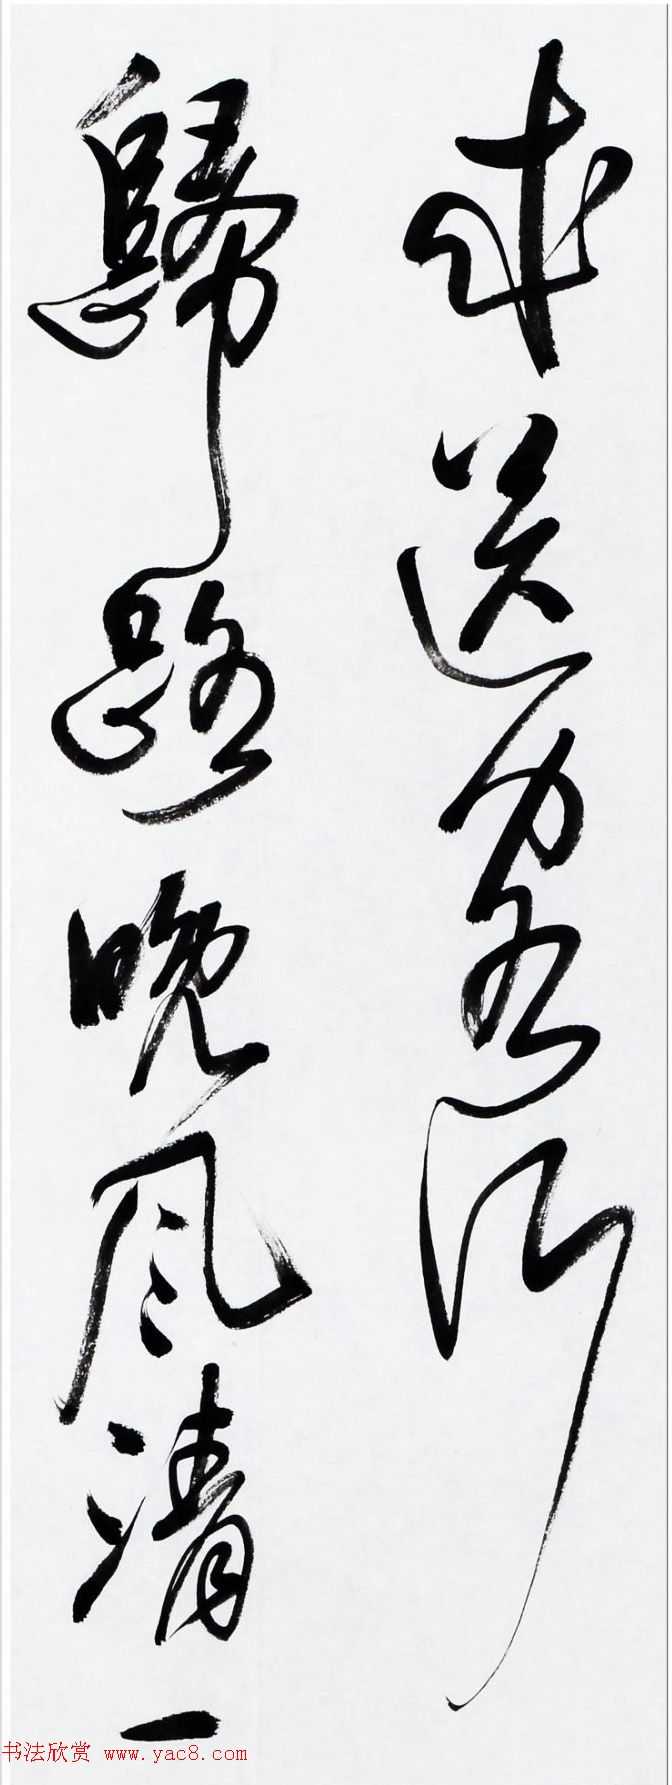 来送客行
歸路晚風清一
书法欣赏 www.yac8.com